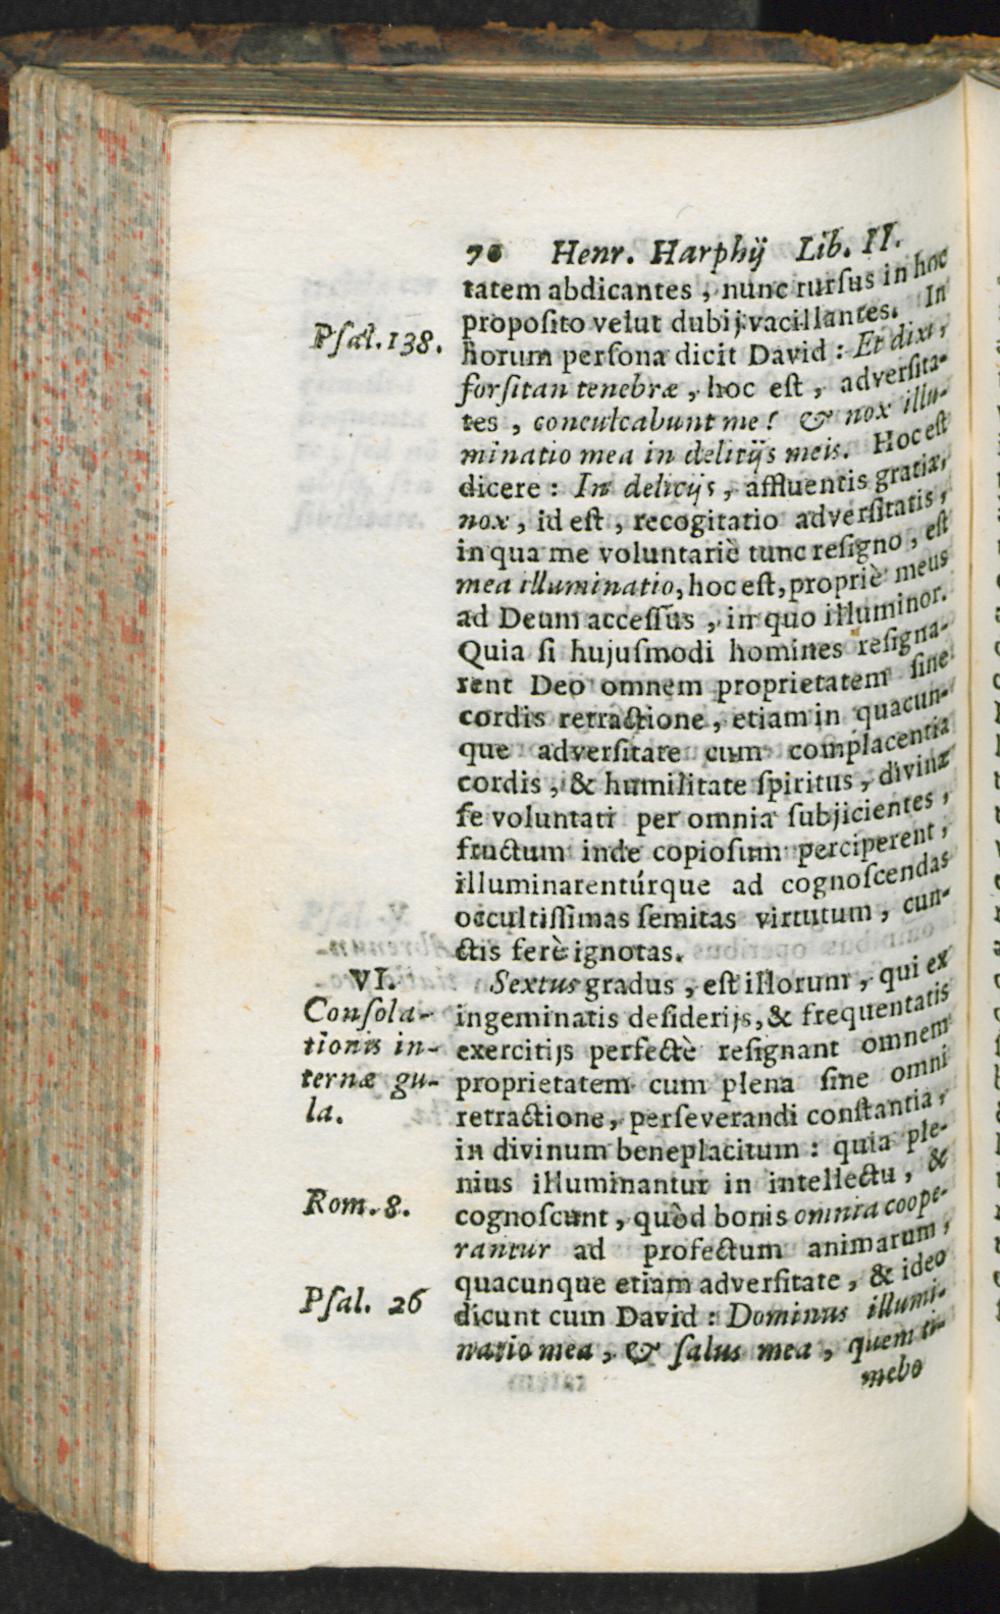 70 Henr. Harphij Lib. II.
tatem abdicantes, nunc rursus in hoc
proposito velut dubij vacillantes. In
Psal. 138.
horum persona dicit David: Et dixi,
forsitan tenebræ, hoc est, adversita-
tes, conculcabunt me! & nox illu-
minatio mea in delitijs meis. Hoc est
dicere: In delicijs, affluentis gratiæ,
nox, id est, recogitatio adversitatis,
in qua me voluntariè tunc resigno, est
mea illuminatio, hoc est, propriè meus
ad Deum accessus, in quo illuminor.
Quia si hujusmodi homines resigna-
rent Deo omnem proprietatem sine
cordis retractione, etiam in quacun-
que adversitate cum complacentia
cordis, & humilitate spiritus, divinæ
se voluntati per omnia subjicientes,
fructum inde copiosum perciperent,
illuminarentúrque ad cognoscendas
occultissimas semitas virtutum, cun-
ctis ferè ignotas.
VI.
Consola-
tionis in-
ternæ gu-
la.
Sextus gradus, est illorum, qui ex
ingeminatis desiderijs, & frequentatis
exercitijs perfectè resignant omnem
proprietatem cum plena sine omni
retractione, perseverandi constantia,
in divinum beneplacitum: quia ple-
nius illuminantur in intellectu, &
Rom. 8.
cognoscunt, quòd bonis omnia coope-
rantur ad profectum animarum,
quacunque etiam adversitate, & ideo
Psal. 26
dicunt cum David: Dominus illumi-
natio mea, & salus mea, quem ti-
mebo